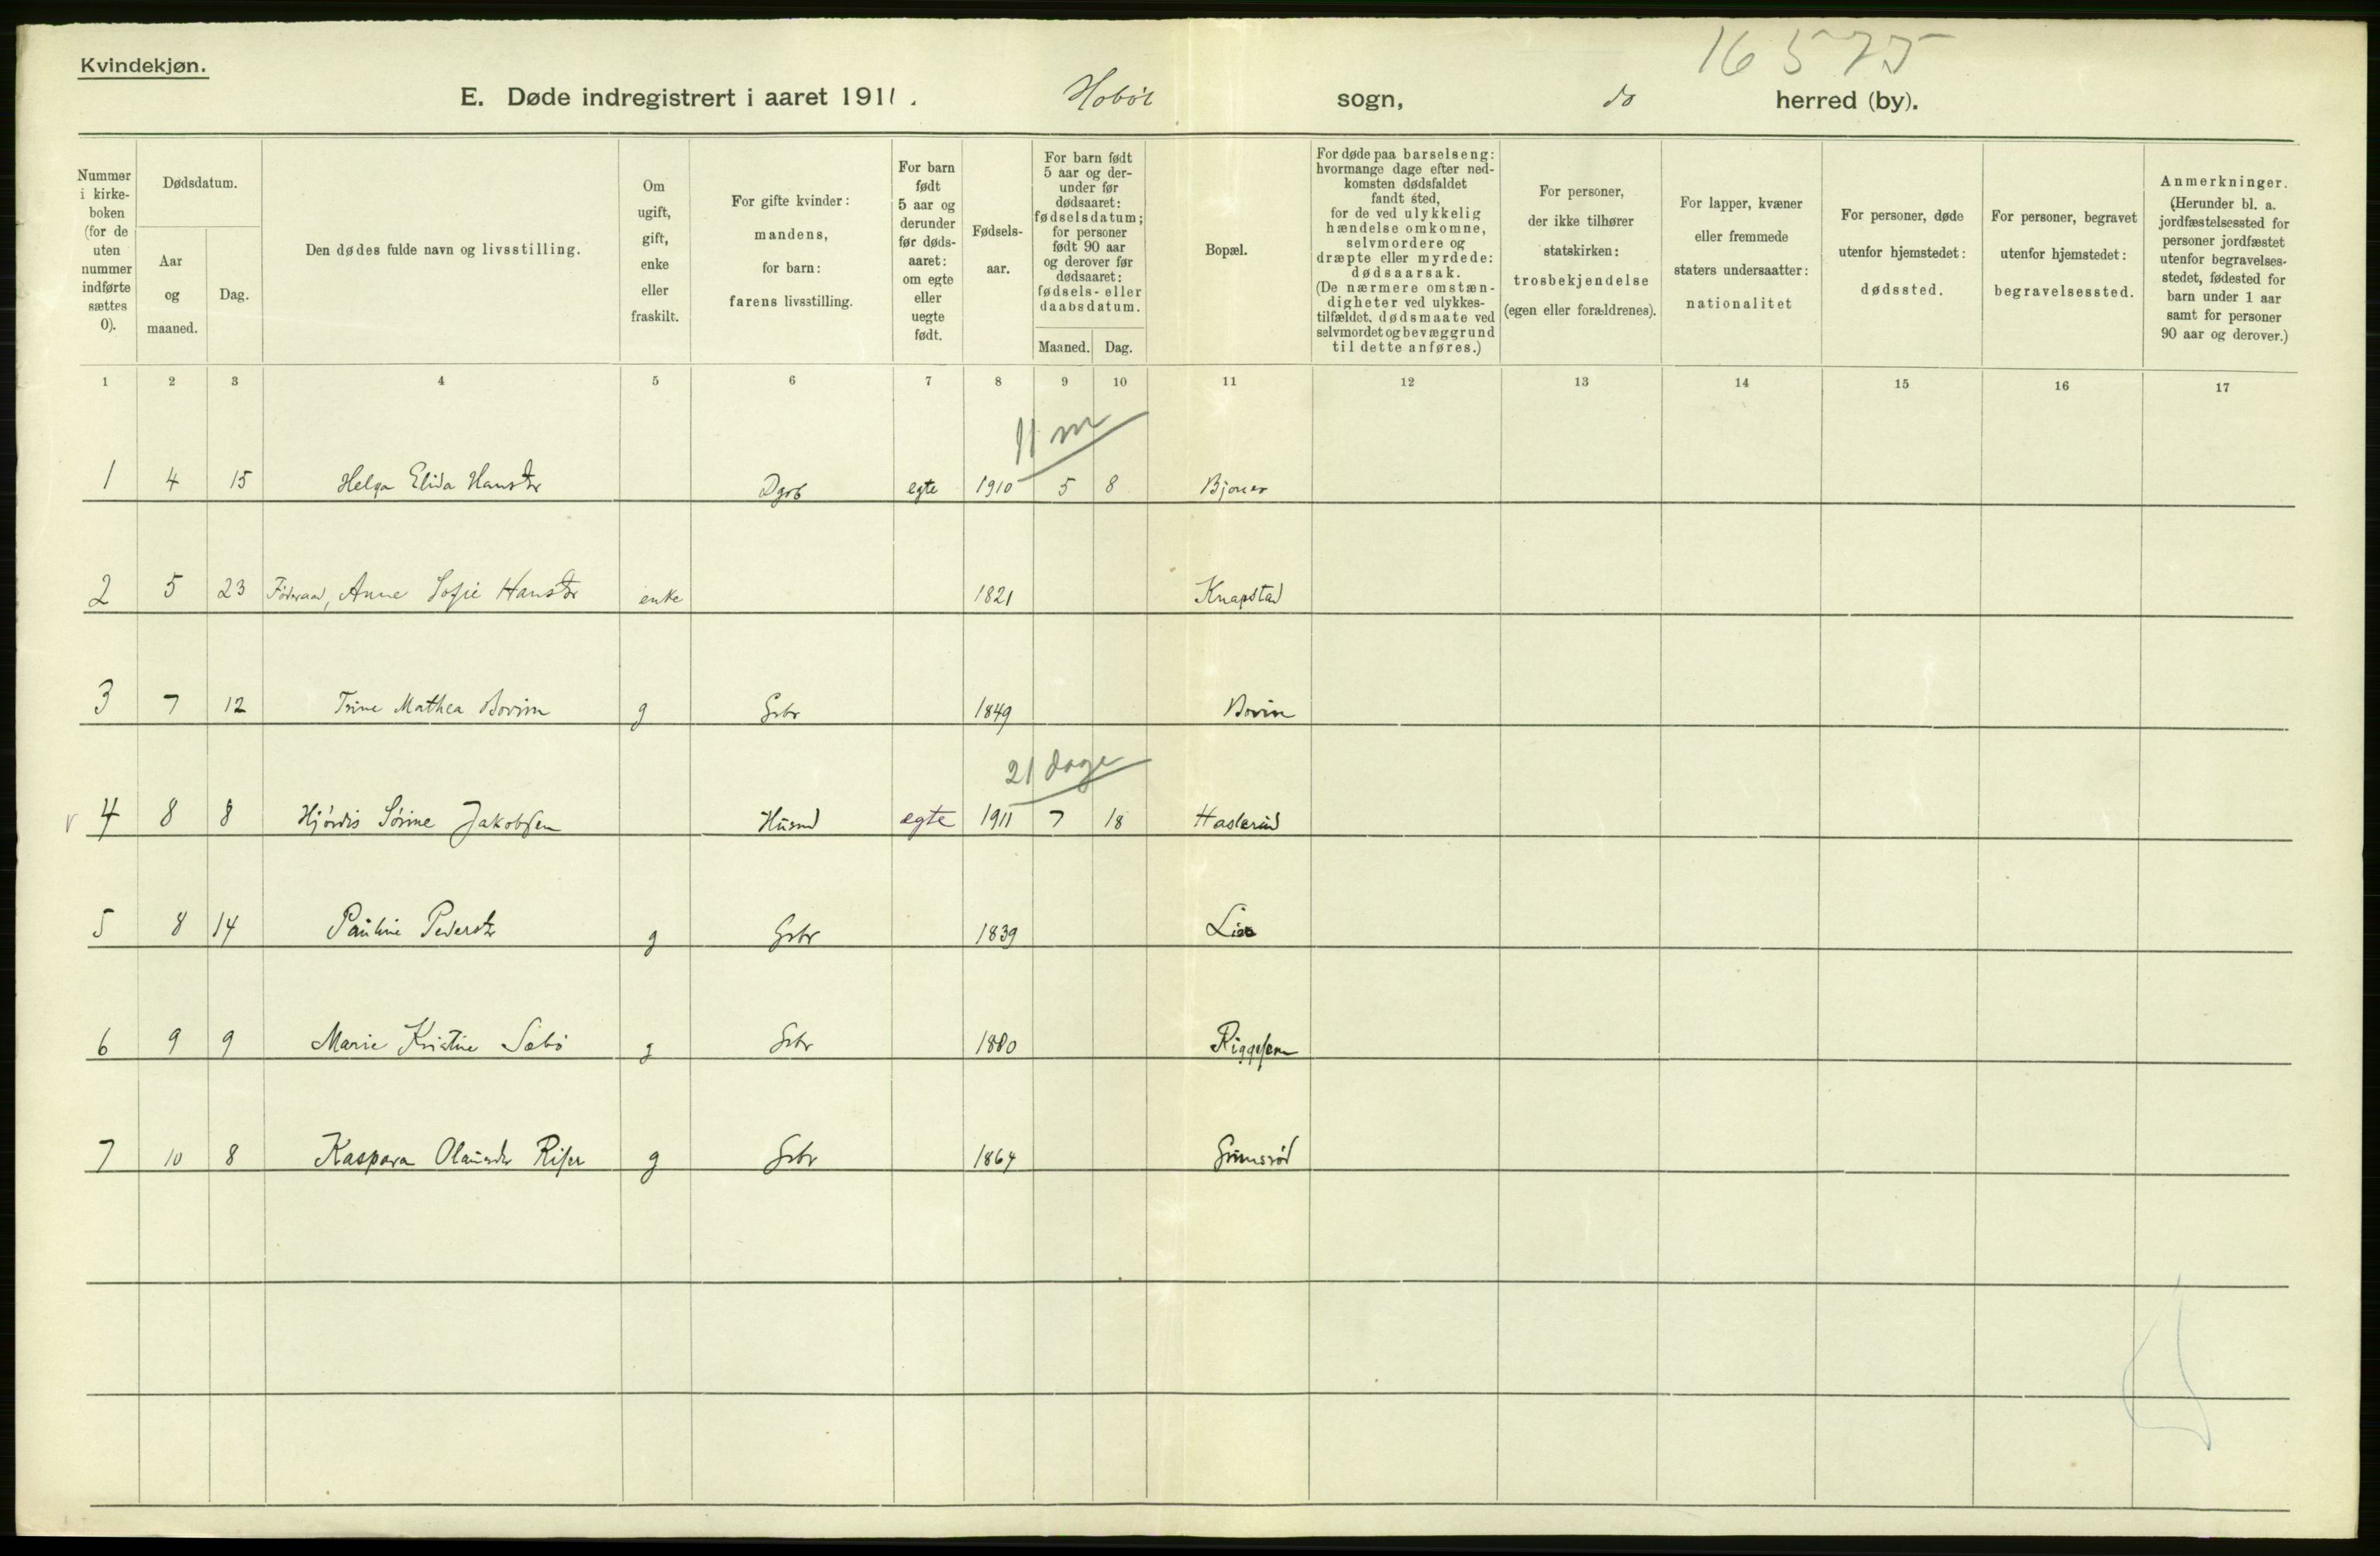 16575
Kvindekjøn.
E. Døde indregistrert i aaret 1911. Hobøl sogn, do herred (by).
Nummer i kirke-boken (for de uten nummer indførte sættes 0).
Dødsdatum.
Aar og maaned.
Dag.
Den dødes fulde navn og livsstilling.
Om ugift, gift, enke eller fraskilt.
For gifte kvinder: mandens, for barn: farens livsstilling.
For barn født 5 aar og derunder før døds-aaret: om egte eller uegte født.
Fødsels-aar.
For barn født 5 aar og der-under før dødsaaret: fødselsdatum; for personer født 90 aar og derover før dødsaaret: fødsels- eller daabsdatum.
Maaned.
Dag.
Bopæl.
For døde paa barselseng: hvormange dage efter ned-komsten dødsfaldet fandt sted, for de ved ulykkelig hændelse omkomne, selvmordere og dræpte eller myrdede: dødsaarsak. (De nærmere omstæn-digheter ved ulykkes-tilfældet, dødsmaate ved selvmordet og bevæggrund til dette anføres.)
For personer, der ikke tilhører statskirken: trosbekjendelse (egen eller forældrenes).
For lapper, kvæner eller fremmede staters undersaatter: nationalitet
For personer, døde utenfor hjemstedet: dødssted.
For personer, begravet utenfor hjemstedet: begravelsessted.
Anmerkninger. (Herunder bl. a. jordfæstelsessted for personer jordfæstet utenfor begravelses-stedet, fødested for barn under 1 aar samt for personer 90 aar og derover.)
1 2 3 4 5 6 7 8 9 10 11 12 13 14 15 16 17
11 m
1 4 15 Helga Elida Hansdtr egte 1910 5 8 Bjoner
2 5 23 Føderaad, Anne Sofie Hansdtr enke 1821 Knapstad
3 7 12 Trine Mathea Bovim g Gbr 1849 Bovim
21 dage
4 8 8 Hjørdis Sørine Jakobsen Husmd egte 1911 7 18 Haslerud
5 8 14 Pauline Pedersdtr g Gbr 1839
6 9 9 Marie Kristine Sæbø g Gbr 1880
7 10 8 Kaspara Olausdtr Riser g Gbr 1864 Grimsrød